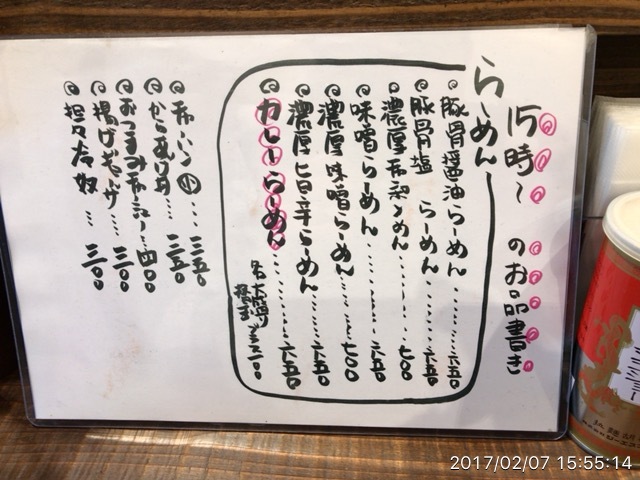 15時〜 のお品書き
らーめん
豚骨醤油らーめん……六五〇
豚骨塩らーめん……六五〇
濃厚和梨〆めん……七〇〇
味噌らーめん……六五〇
濃厚味噌らーめん……七〇〇
濃厚旨辛らーめん……六五〇
カレーらーめん……六五〇
チャーハン 小……三五〇
からあげ……三五〇
おつまみチャーシュー…四〇〇
揚げギョーザ…三〇〇
坦々冷奴…三〇〇
2017/02/07 15:55:14